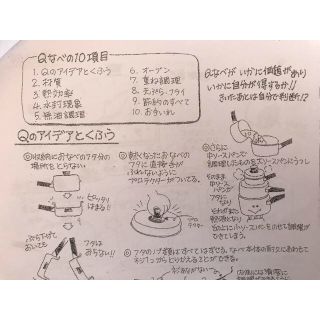 Qなべの10項目
1. Qのアイデアとくふう
2. 材質
3. 熱効率
4. 水封現象
5. 無油調理
6. オーブン
7. 重ね調理
8. 天ぷら・フライ
9. 節約のすべて
10. お手いれ
Qなべが いかに価値があり
いかに自分が得するか!!
きいたあとは自分で判断!?
Qのアイデアとくふう
収納におなべのフタが
場所をとらない
ピッタリ
はまる!!
ぶら下げて
おいても
フタは
おちない!!
熱くなったおなべの
フタに直接手が
ふれないように
プロテクターがついてる。
プロ
テクター
さらに
中ソースパンで
そのまま
中ソース
パンが
フタになり
それがまた
できてしまう。
フタのノブ類はすべてはずせる。なべ本体の取手にあわせて
ネジ1つからとりかえることができる。
ネジがない